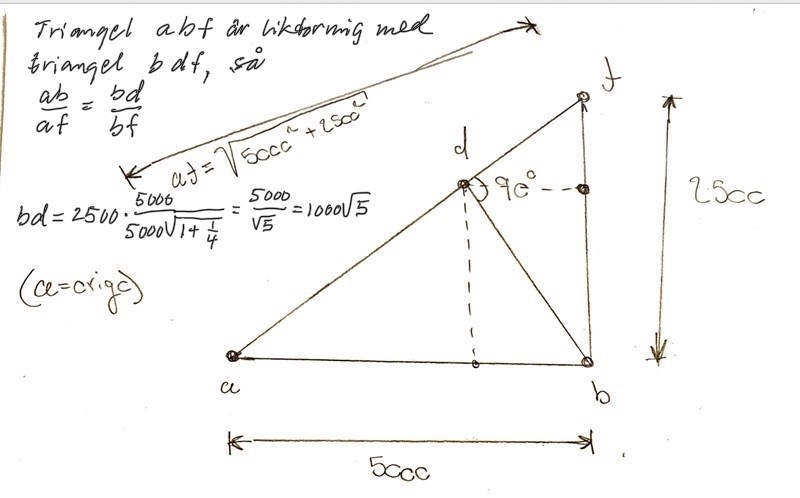 Triangel abf är likformig med
triangel bdf, så
ab/af = bd/bf
af = √5000² + 2500²
bd = 2500 · 5000/5000√1+1/4 = 5000/√5 = 1000√5
(a=origo)
f
d
90°
2500
a
b
5000